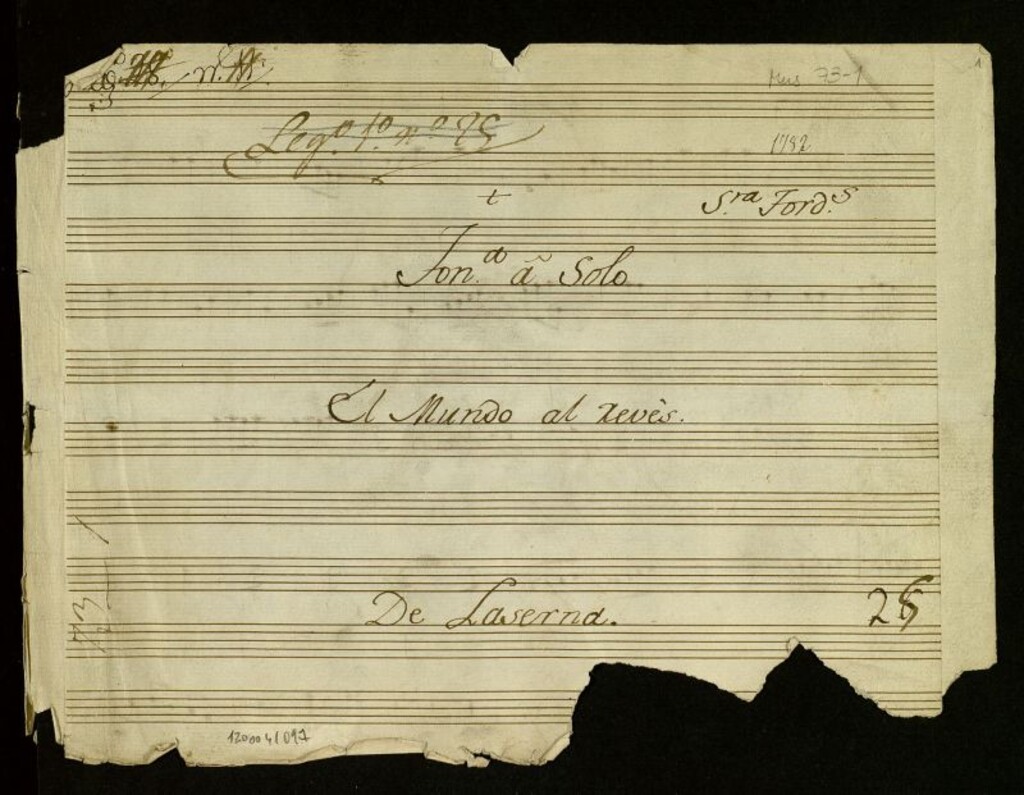 Mus 73-1
1
Leg.º 1.º n.º 25
1782
+
S.ra Tord.s
Ton.da â Solo
El Mundo al revès.
De Laserna.
25
73-1
1200041017